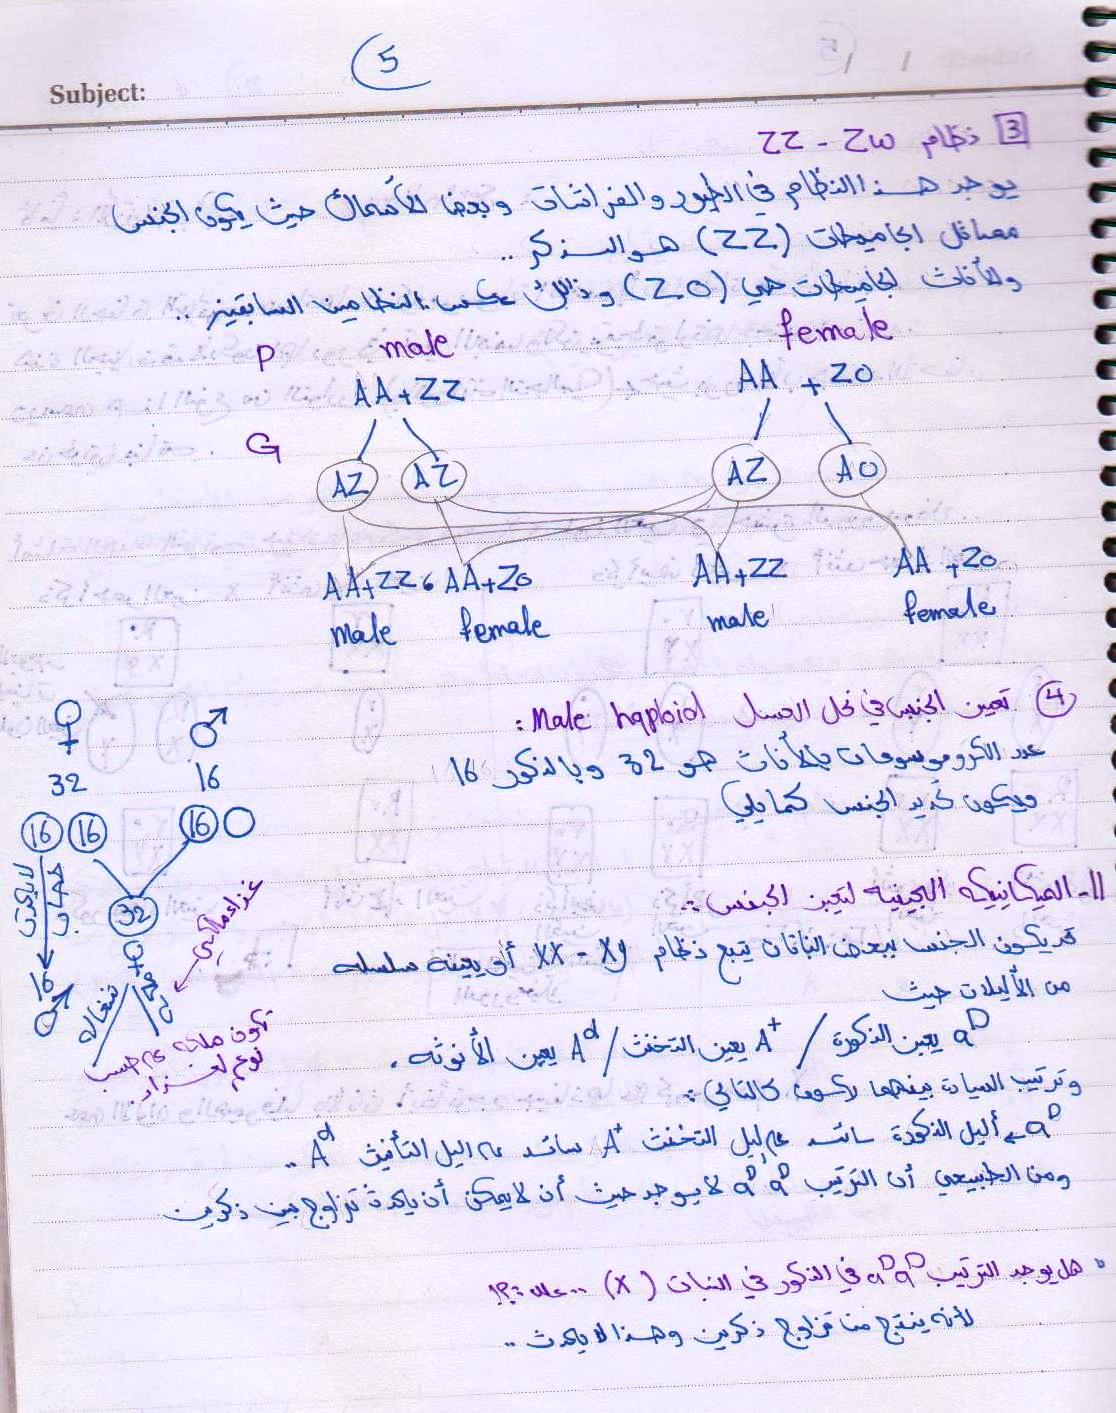 5
Subject:
3 نظام ZZ - ZW
يوجد هذا النظام في الطيور والفراشات وبعض الأسماك حيث يكون الجنس
متماثل الجاميطات (ZZ) هو الذكر ..
والأناث الجاميطات هي (ZO) وذلك عكس النظامين السابقين ..
P male female
AA+ZZ AA + ZO
G
AZ AZ AZ AO
AA+ZZ ، AA+ZO AA+ZZ AA +ZO
male female male female
4 تعين الجنس في نحل العسل Male haploid :
عدد الكروموسومات بالأناث هو 32 وبالذكور 16
ويكون تحديد الجنس كما يلي
♀ ♂
32 16
16 16 16
32
لا يحدث
إخصاب
16
♂
♀
شغاله
غذاء ملكي
تكون ملكه
نوع الغذاء
11- الميكانيكيه الجينيه لتعين الجنس :.
قد يكون الجنس ببعض النباتات يتبع نظام XX - XY أو يعينه سلسله
من الأليلات حيث
aD يعين الذكورة / A+ يعين التخنث / Ad يعين الأنوثه .
وترتيب السيادة بينهما يكون كالتالي :
aD أليل الذكورة سائد على ليل التخنث A+ سائد على اليل التأنيث Ad ..
ومن الطبيعي أن الترتيب aD aD لا يوجد حيث أن لا يمكن أن يحدث تزاوج بين ذكرين
* هل يوجد الترتيب aD aD في الذكور في النبات (X) .. علل ؟!
لأنه ينتج من تزاوج ذكرين وهذا لا يحدث ..